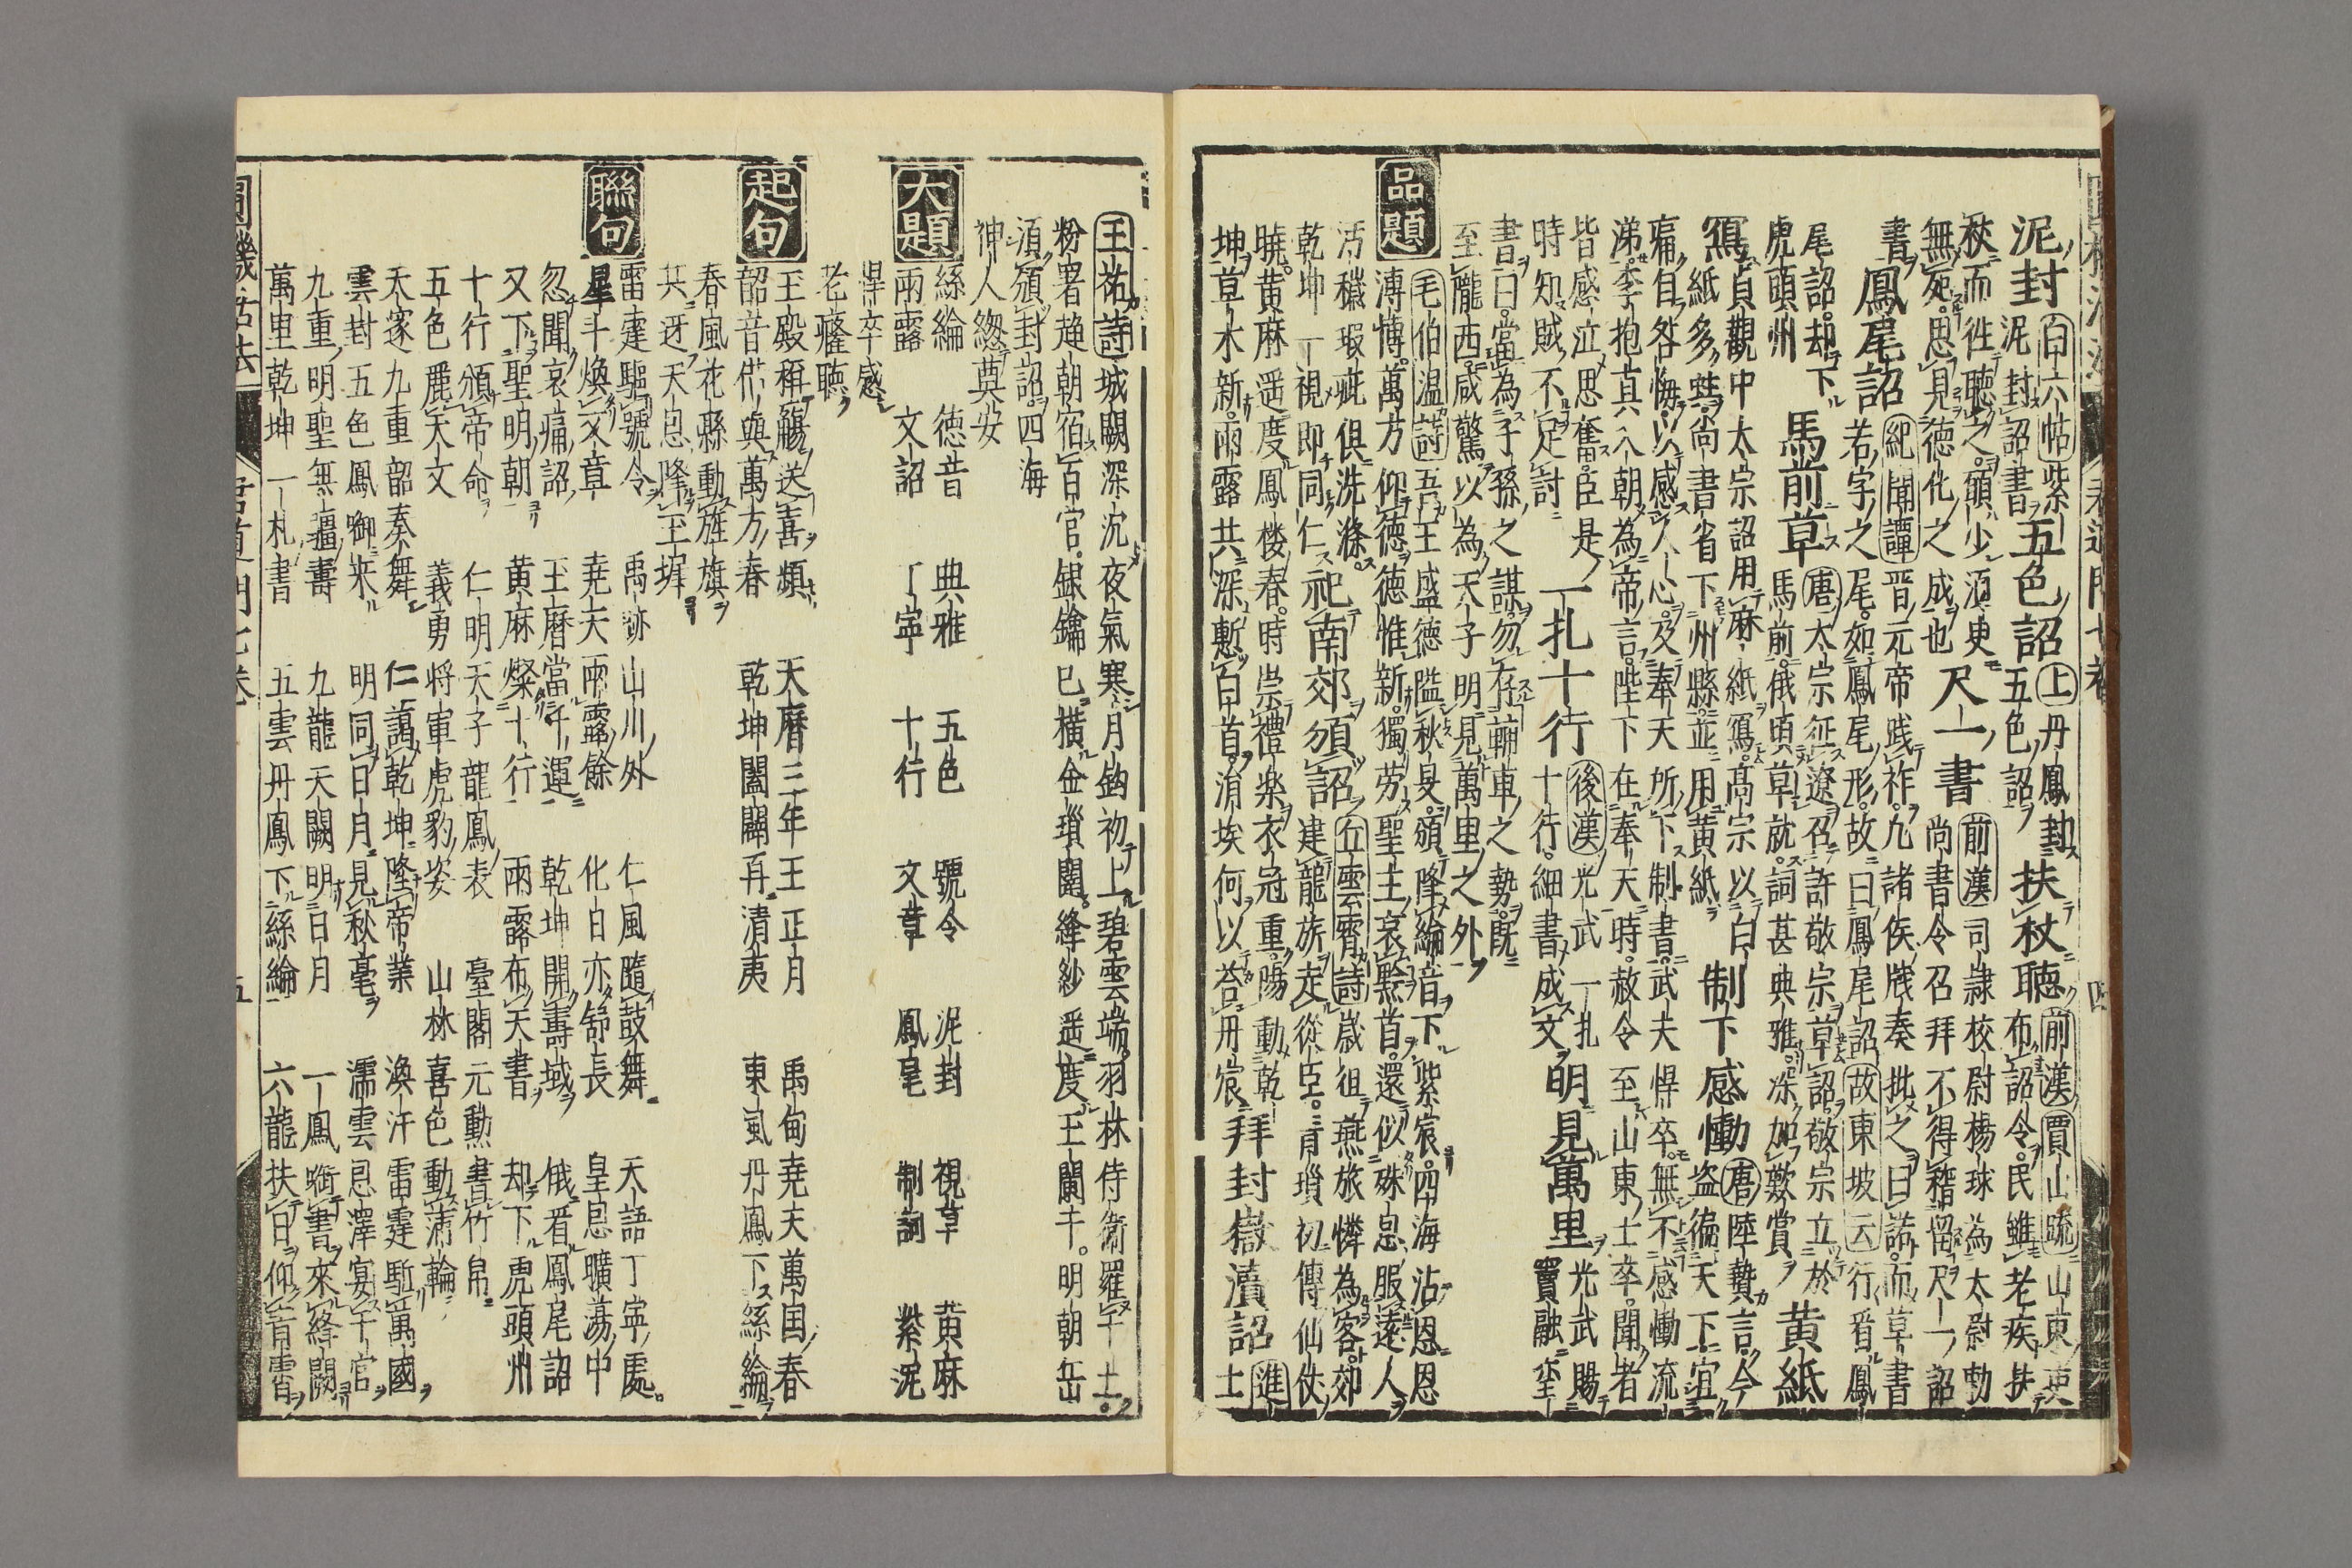 泥封白六帖紫｜五色詔上丹鳳封
泥封詔書五色詔扶杖聴前漢賈山疏山東吏
布詔令民雖老疾扶
杖而徃聴之願少須臾尺一書前漢司隷校尉楊球為太尉勅
無死思見徳化之成也尚書令召拜不得稽留尺一詔
書鳳尾詔紀聞譚晋元帝践祚凢諸侯牋奏批之曰諾而草書
若字之尾如鳳尾形故曰鳳尾詔故東坡云行看鳳
尾詔却下馬前草唐太宗征遼召許敬宗草詔敬宗立於
虎頭州馬前俄頃草就詞甚典雅深加歎賞黄紙
冩貞觀中太宗詔用麻紙冩髙宗以白
紙多蛀尚書省下州縣並用黄紙制下感慟唐陸贄言今
盗徧天下宜
痛自咎悔以感人心及奉天所下制書武夫悍卒無不感慟流
涕李抱真入朝為帝言陛下在奉天時赦令至山東士卒聞者
皆感泣思奮臣是
時知賊不足討一扎十行後漢光武一扎
十行細書成文明見萬里光武賜
竇融璽
書曰當為子孫之謀勿有輔車之勢既
至隴西咸驚以為天子明見萬里之外
品題
毛伯温詩吾王盛徳隘秋旻頒降綸音下紫宸四海沾恩恩
溥博萬方仰徳徳惟新獨労聖主哀黔首還似殊恩服遠人
汚穢瑕疵俱洗滌丘雲霄詩歳徂燕旅憐為客郊
乾坤一視即同仁祀南郊頒詔建龍旂走從臣青瑣初傳仙仗
暁黄麻遥度鳳楼春時崇禮楽衣冠重陽動乾
坤草木新雨露共深慙白首涓埃何以荅丹宸拜封嶽瀆詔進
士
王祐詩城闕深沉夜氣寒月鈎初上碧雲端羽林侍衛羅千士
粉署趍朝宿百官銀鑰已横金瑣闥絳紗遥度玉闌干明朝岳
瀆頒封詔四海
神人緫奠安
大題
絲綸 徳音 典雅 五色 號令 泥封 視草 黄麻
雨露 文詔 丁寧 十行 文章 鳳尾 制詞 紫泥
悍卒感
老癃聴
起句
玉殿稱觴送喜頻 天暦三年王正月 禹甸堯夫萬国春
韶音偕與萬方春 乾坤闔闢再清夷 東風丹鳳下絲綸
春風花縣動旌旗
共迓天恩降玉墀
聯句
雷霆驅號令 禹跡山川外 仁風隨鼓舞 天語丁寧處
星斗煥文章 堯天雨露餘 化日亦舒長 皇恩曠蕩中
忽聞哀痛詔 玉暦當千運 乾坤開壽域 俄看鳳尾詔
又下聖明朝 黄麻燦十行 雨露布天書 却下虎頭州
十行頒帝命 仁明天子龍鳳表 臺閣元勲書竹帛
五色麗天文 義勇将軍虎豹姿 山林喜色動蒲輪
天家九重韶奏舞 仁藹乾坤隆帝業 渙汗雷霆駈萬國
雲封五色鳳啣来 明同日月見秋毫 濡雲恩澤宴千官
九重明聖無疆壽 九龍天闕明日月 一鳳啣書來絳闕
萬里乾坤一札書 五雲丹鳳下絲綸 六龍扶日仰青霄
圓機活法 君道門七巻 五